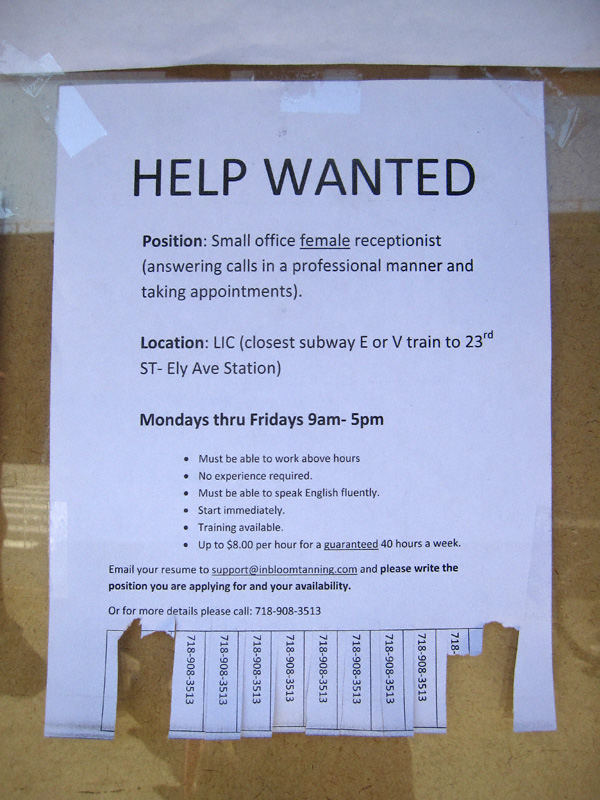 HELP WANTED
Position: Small office female receptionist
(answering calls in a professional manner and
taking appointments).
Location: LIC (closest subway E or V train to 23rd
ST- Ely Ave Station)
Mondays thru Fridays 9am- 5pm
• Must be able to work above hours
• No experience required.
• Must be able to speak English fluently.
• Start immediately.
• Training available.
• Up to $8.00 per hour for a guaranteed 40 hours a week.
Email your resume to support@inbloomtanning.com and please write the
position you are applying for and your availability.
Or for more details please call: 718-908-3513
718-908-3513
718-908-3513
718-908-3513
718-908-3513
718-908-3513
718-908-3513
718-908-3513
718-908-3513
718-